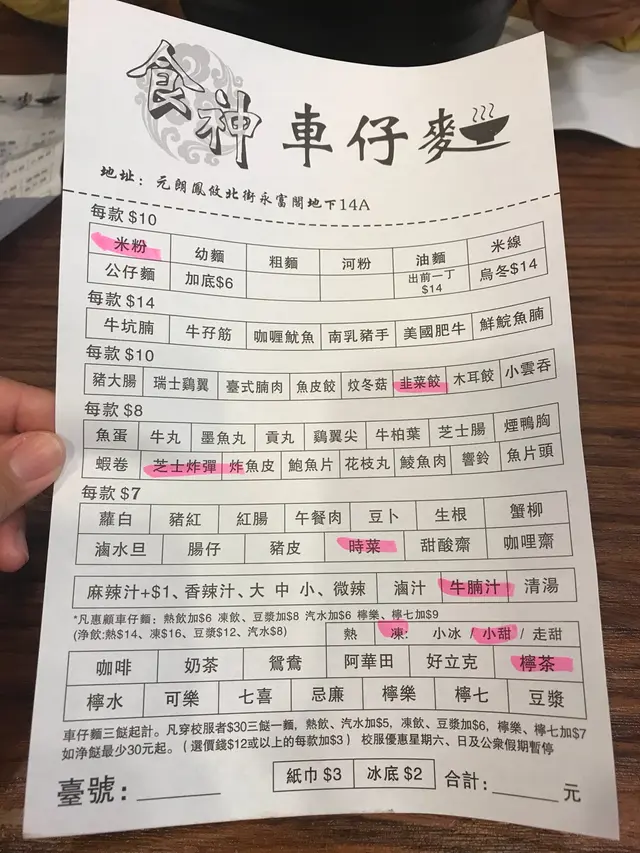 食神 車仔麥
地址：元朗鳳攸北街永富閣地下14A
每款 $10
米粉 幼麵 粗麵 河粉 油麵 米線
公仔麵 加底$6 出前一丁 $14 烏冬$14
每款 $14
牛坑腩 牛孖筋 咖喱魷魚 南乳豬手 美國肥牛 鮮鯇魚腩
每款 $10
豬大腸 瑞士鷄翼 臺式腩肉 魚皮餃 炆冬菇 韭菜餃 木耳餃 小雲吞
每款 $8
魚蛋 牛丸 墨魚丸 貢丸 鷄翼尖 牛柏葉 芝士腸 煙鴨胸
蝦卷 芝士炸彈 炸魚皮 鮑魚片 花枝丸 鯪魚肉 響鈴 魚片頭
每款 $7
蘿白 豬紅 紅腸 午餐肉 豆卜 生根 蟹柳
滷水旦 腸仔 豬皮 時菜 甜酸齋 咖哩齋
麻辣汁+$1、香辣汁、大 中 小、微辣 滷汁 牛腩汁 清湯
*凡惠顧車仔麵：熱飲加$6 凍飲、豆漿加$8 汽水加$6 檸樂、檸七加$9
(淨飲:熱$14、凍$16、豆漿$12、汽水$8)
熱 凍: 小冰 / 小甜 / 走甜
咖啡 奶茶 鴛鴦 阿華田 好立克 檸茶
檸水 可樂 七喜 忌廉 檸樂 檸七 豆漿
車仔麵三餸起計。凡穿校服者$30三餸一麵，熱飲、汽水加$5，凍飲、豆漿加$6，檸樂、檸七加$7
如淨餸最少30元起。（選價錢$12或以上的每款加$3） 校服優惠星期六、日及公眾假期暫停
紙巾 $3 冰底 $2
臺號：______ 合計：______元